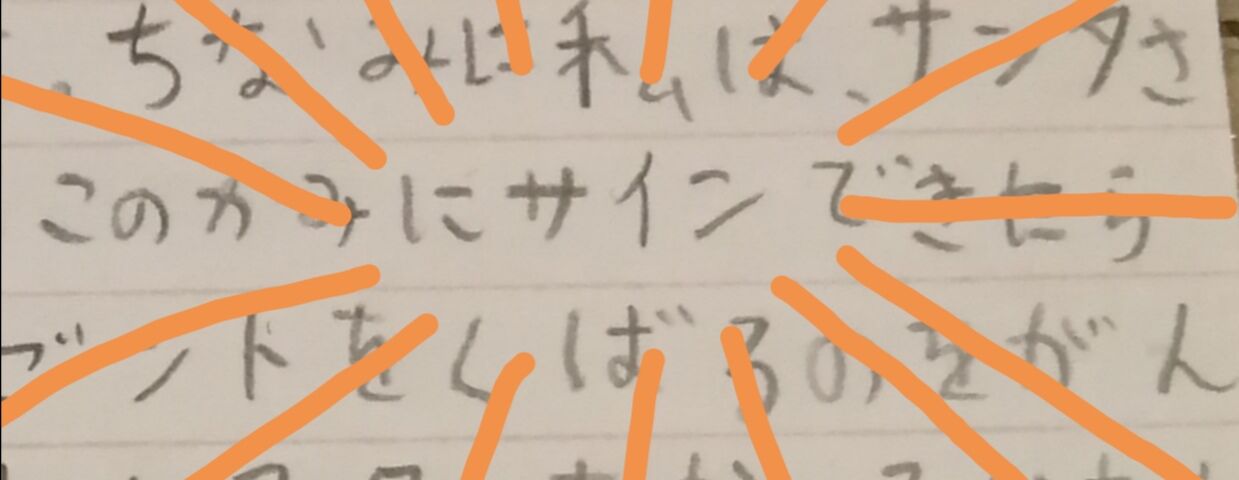 ちなみに私は、サンタさ
このかみにサインできたら
ゼントをくばるのをがん